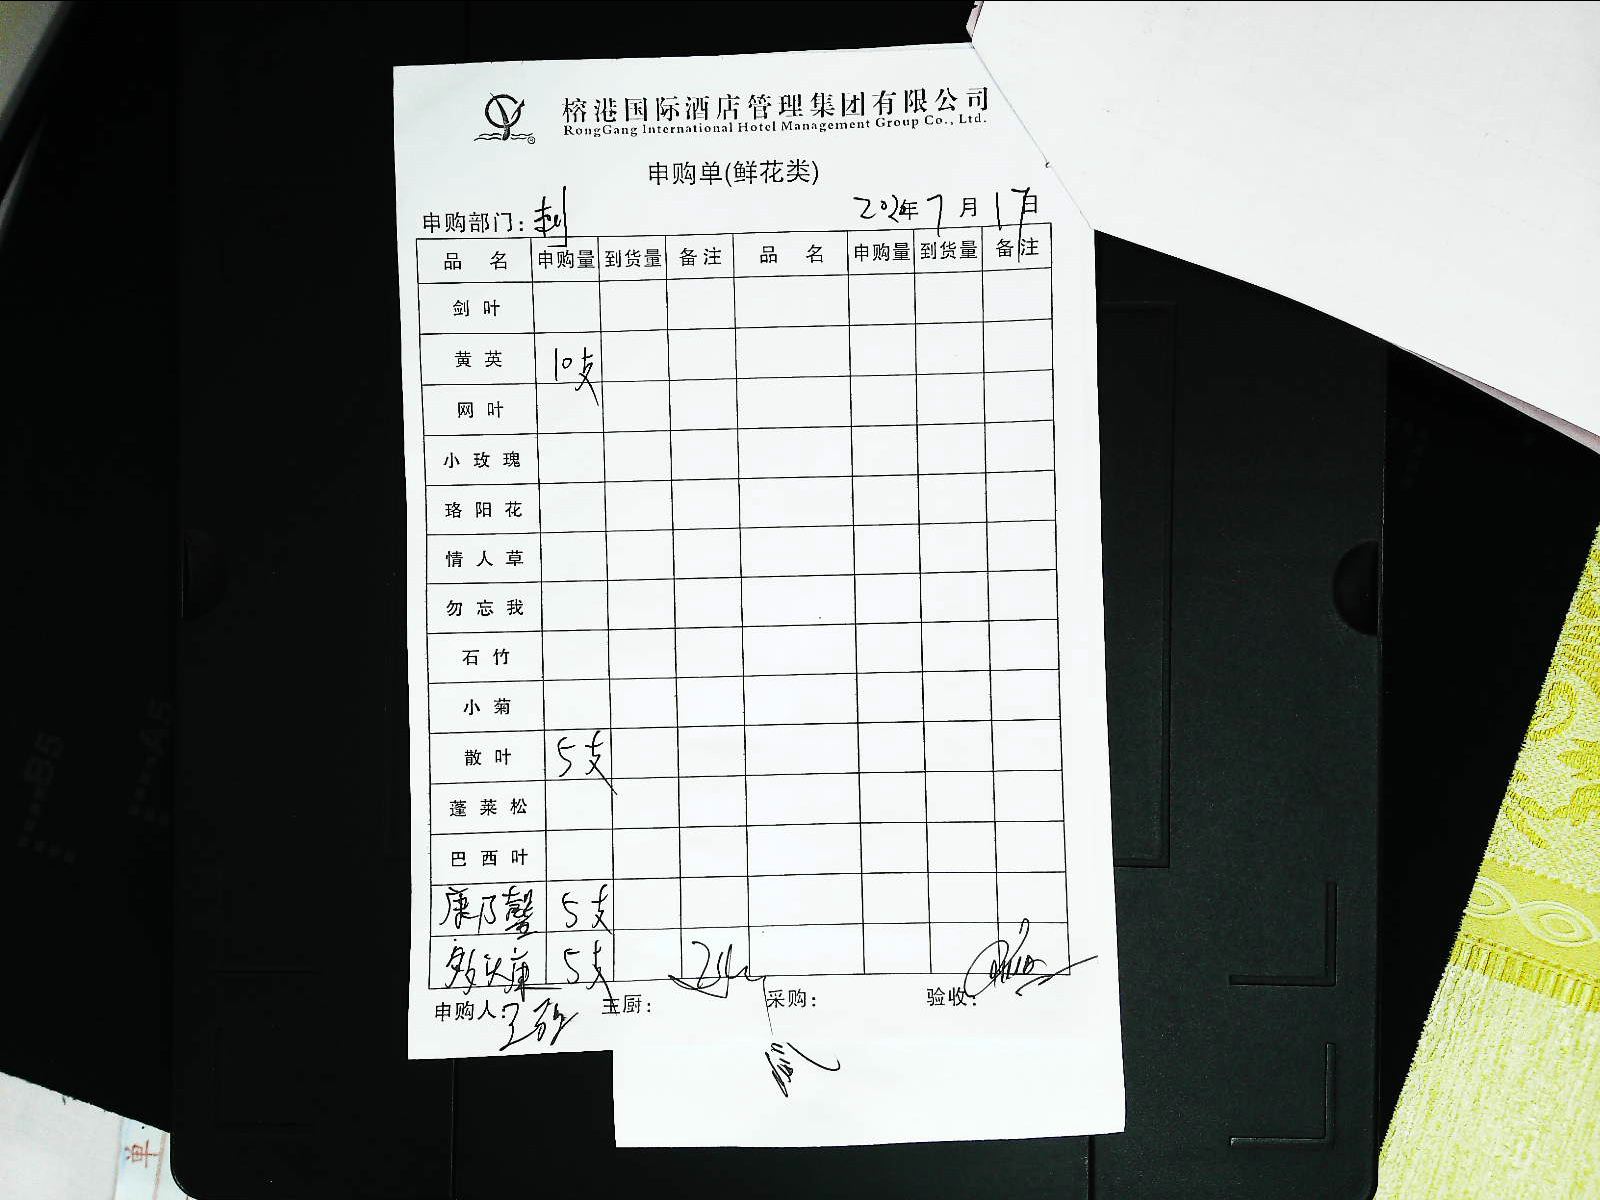 榕港国际酒店管理集团有限公司
RongGang International Hotel Management Group Co., Ltd.
申购单(鲜花类)
申购部门: 刺 2020年7月17日
品 名 申购量 到货量 备注 品 名 申购量 到货量 备注
剑叶
黄英 10支
网叶
小玫瑰
珞阳花
情人草
勿忘我
石竹
小菊
散叶 5支
蓬莱松
巴西叶
康乃馨 5支
多头康 5支
申购人: 主厨: 采购: 验收:
B5
A5
单